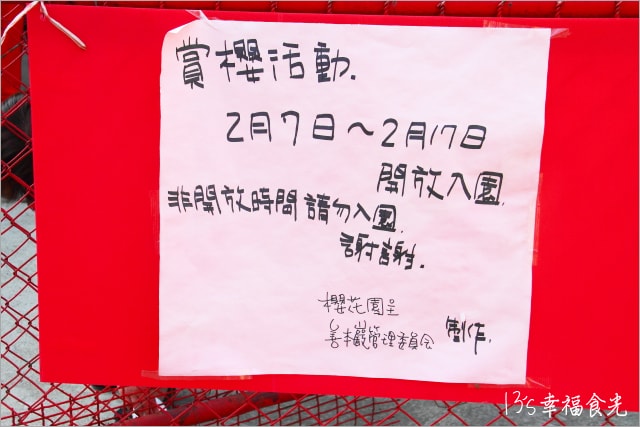 賞櫻活動.
2月7日~2月17日
開放入園.
非開放時間 請勿入園.
謝謝.
櫻花園呈
善丰巖管理委員会 製作.
13's幸福食光